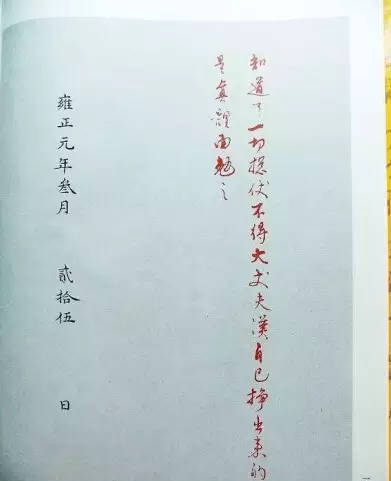 知道了一切總仗不得大丈夫漢自己掙出來的
是真體面勉之
雍正元年叁月 貳拾伍 日